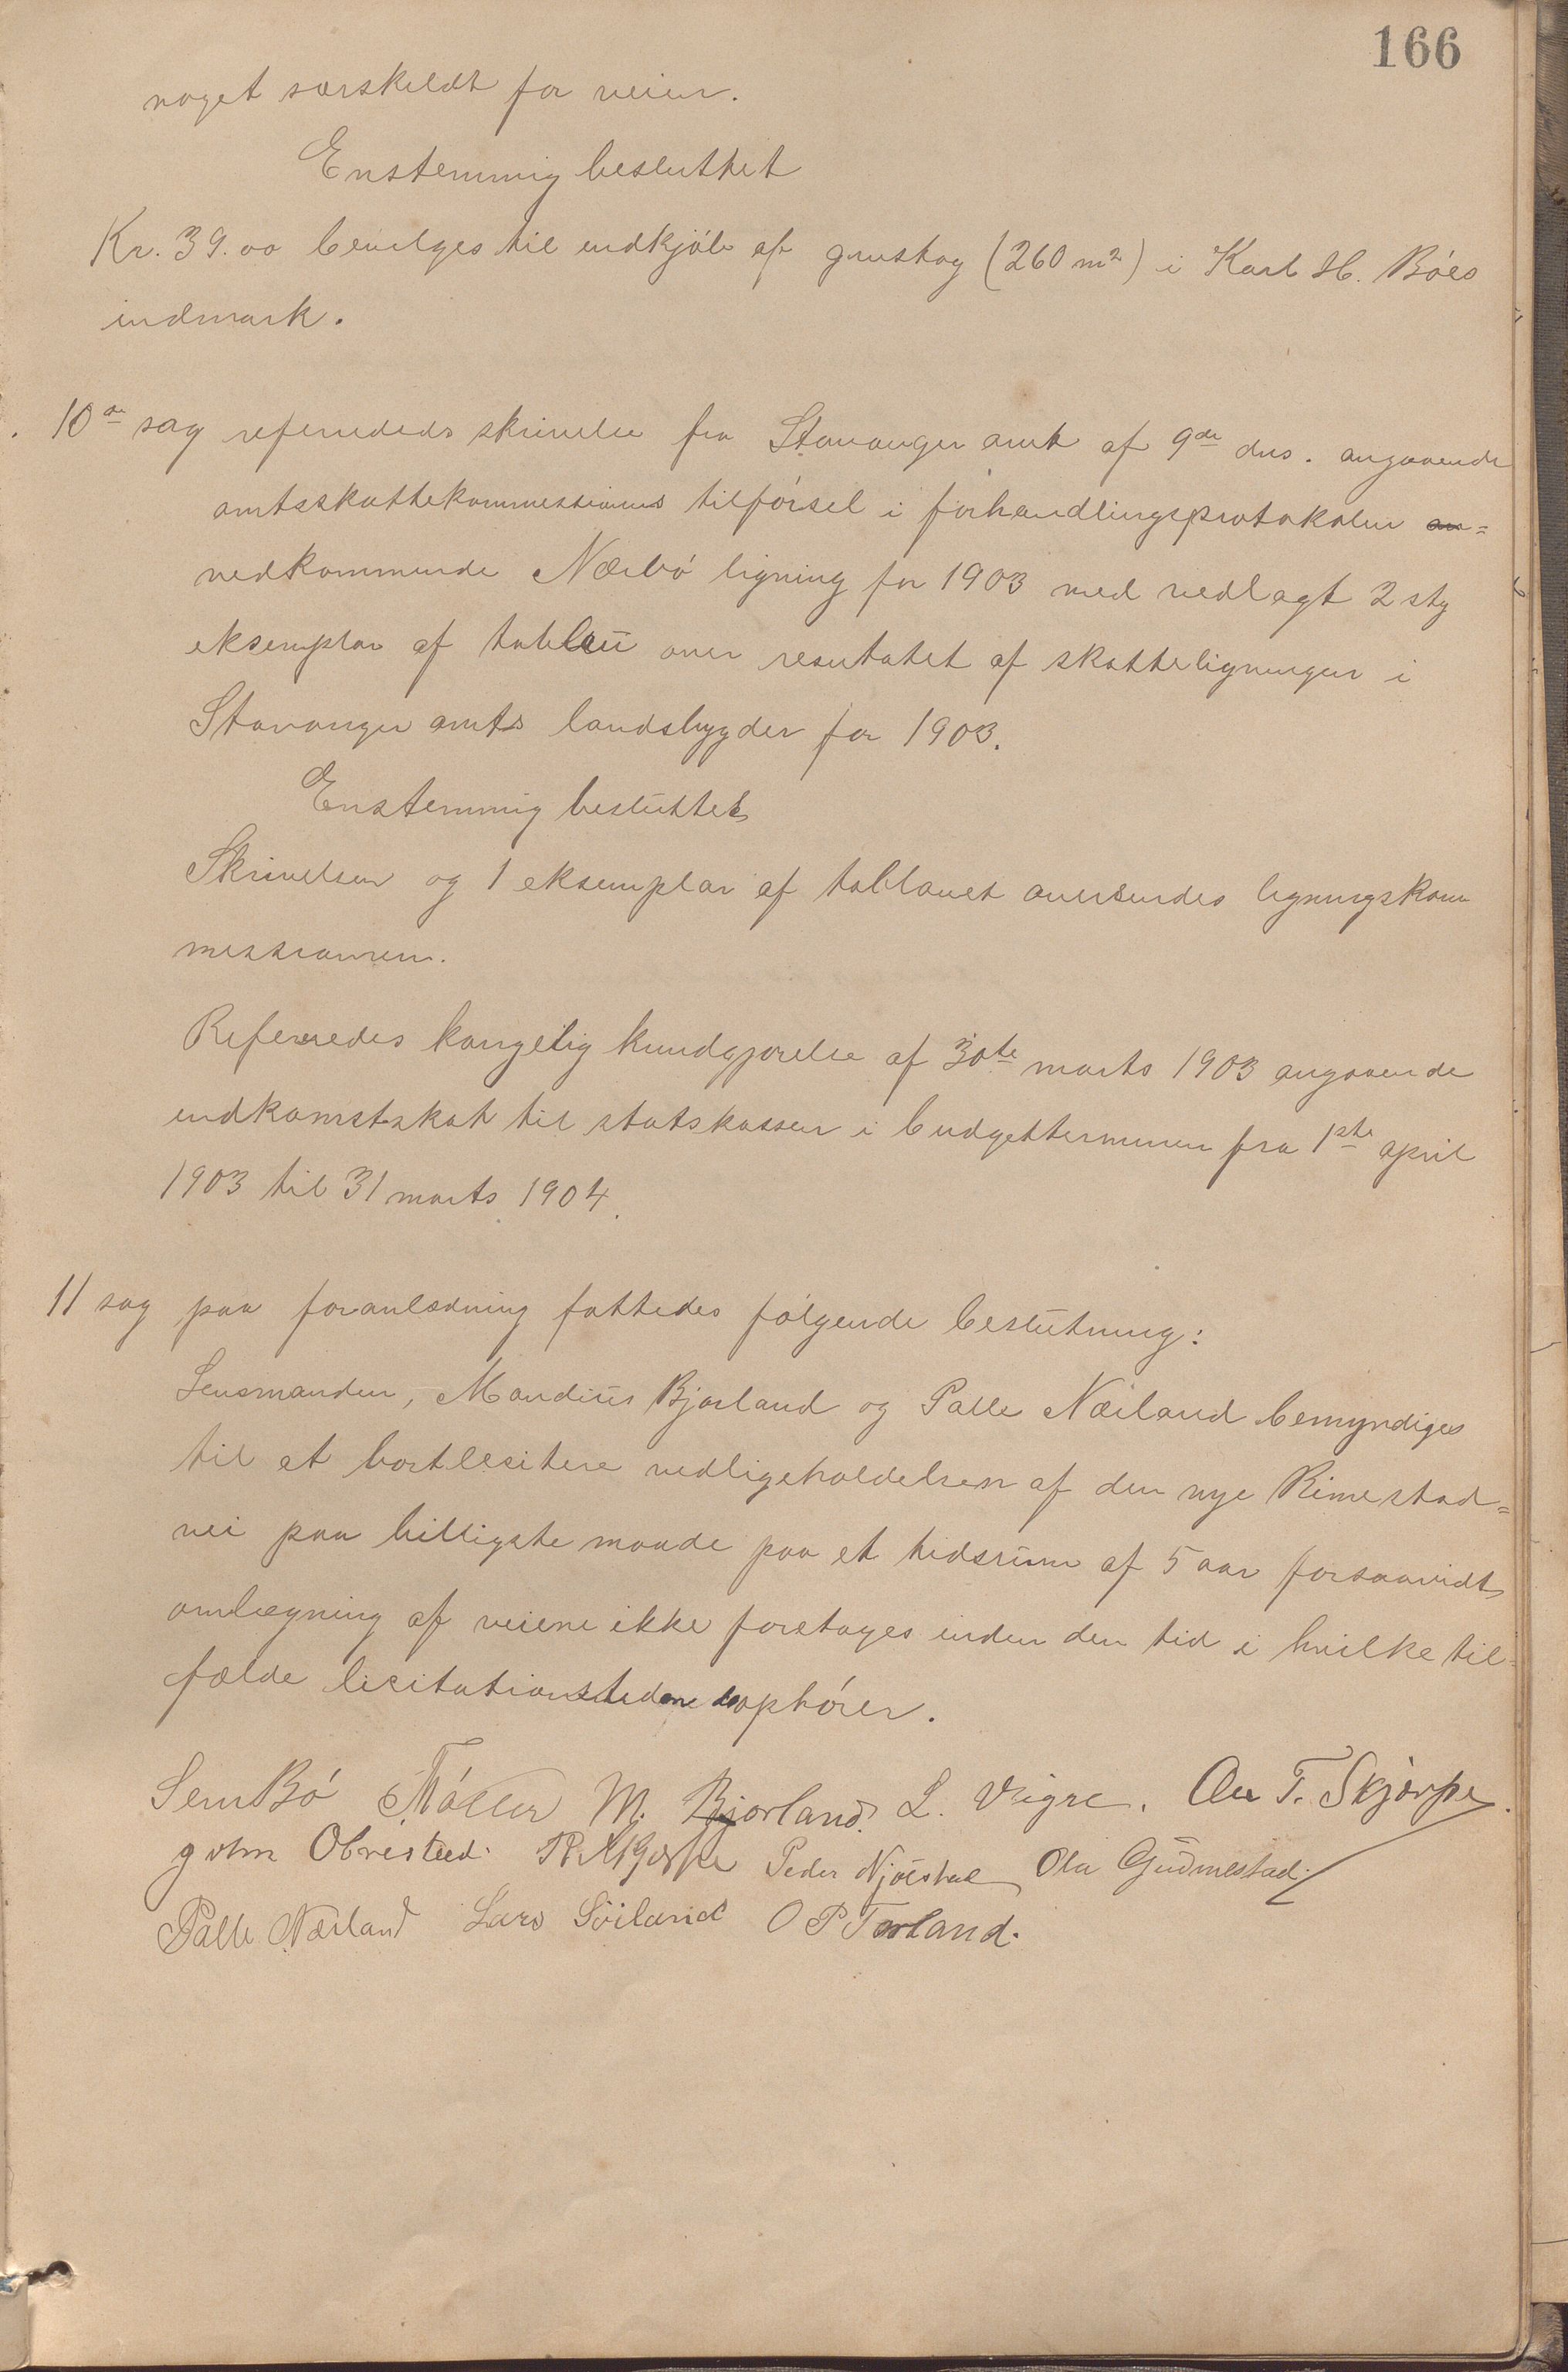 166
noget særskeldt for veien.
Enstemmig besluttet
Kr. 39.00 bevilges til indkjöb af grustag (260 m²) i Karl H. Böes
indmark.
10de sag refereredes skrivelse fra Stavanger amt af 9de dns. angaaende
amtsskattekommissionens tilförsel i forhandlingsprotokolen
vedkommende Nærbö ligning for 1903 med vedlagt 2 stg
eksemplar af tablau over resutatet af skatteligningen i
Stavanger amts landsbygder for 1903.
Enstemmig besluttet
Skrivelsen og 1 eksemplar af tablauet oversendes ligningskom
missionen.
Refereredes kongelig kundgjørelse af 30te marts 1903 angaaende
indkomstskat til statskassen i budgetterminen fra 1ste april
1903 til 31 marts 1904.
11 sag paa foranledning fattedes fölgende beslutning:
Lensmanden, Mandius Bjorland og Palle Næiland bemyndiges
til et bortlesitere vedligeholdelsen af den nye Rimestad=
vei paa billigste maade paa et tidsrum af 5 aar forsaavidt
omlægning af veiene ikke foretages inden den tid i hvilke til=
fælde licitationstiden ophörer.
Sem Bö M. Bjorland. L. Vigre. T. Skjærpe.
John Obrestad. Peder Njölstad Ola Gudmestad.
Palle Næiland Lars Söiland O P Torland.